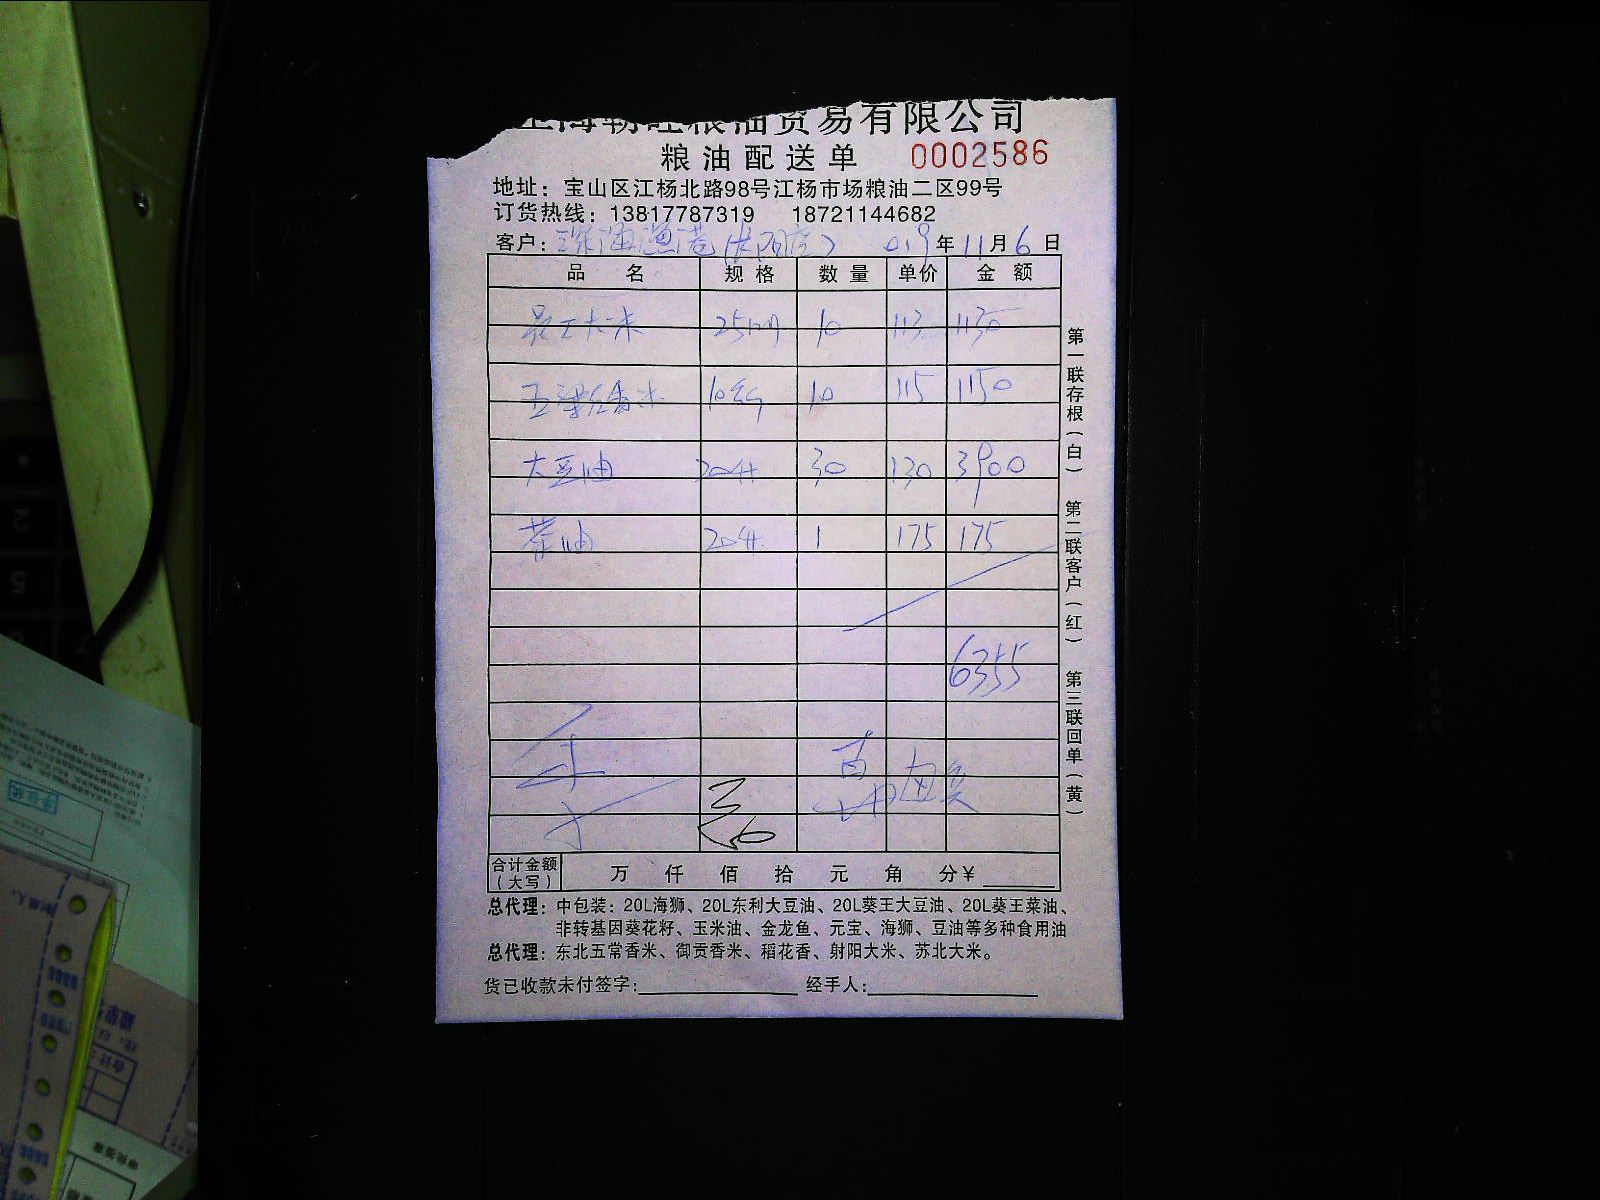 上海勒旺粮油贸易有限公司
粮油配送单 0002586
地址：宝山区江杨北路98号江杨市场粮油二区99号
订货热线：13817787319 18721144682
客户：深海渔港 019年11月6日
品名 规格 数量 单价 金额
大米 25 10 113 1130
香米 10 10 115 1150
大豆油 20升 30 130 3900
菜油 20升 1 175 175
6355
合计金额（大写） 万 仟 佰 拾 元 角 分¥
总代理：中包装：20L海狮、20L东利大豆油、20L葵王大豆油、20L葵王菜油、
非转基因葵花籽、玉米油、金龙鱼、元宝、海狮、豆油等多种食用油
总代理：东北五常香米、御贡香米、稻花香、射阳大米、苏北大米。
货已收款未付签字： 经手人：
第一联存根（白） 第二联客户（红） 第三联回单（黄）